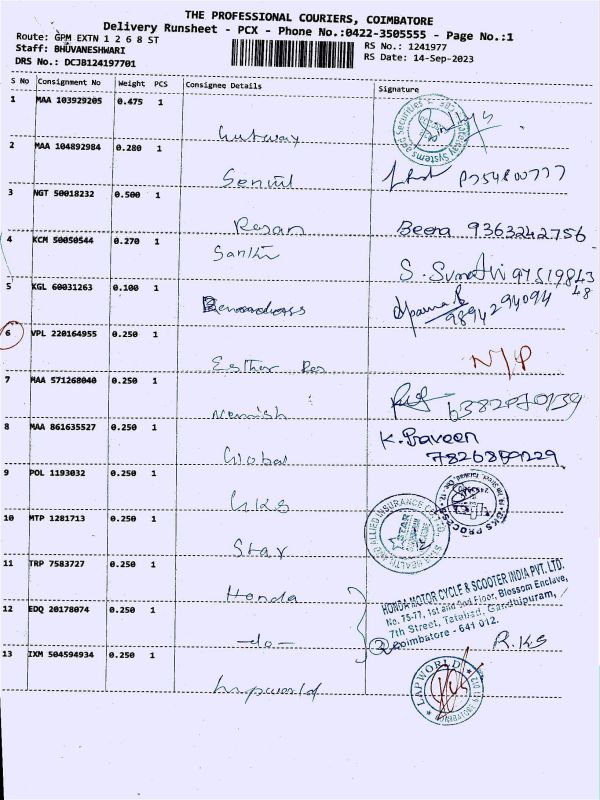 THE PROFESSIONAL COURIERS, COIMBATORE
Delivery Runsheet - PCX - Phone No.:0422-3505555 - Page No.:1
Route: GPM EXTN 1 2 6 8 ST
RS No.: 1241977
Staff: BHUVANESHWARI
RS Date: 14-Sep-2023
DRS No.: DCJB124197701
S No Consignment No Weight PCS Consignee Details Signature
1 MAA 103929205 0.475 1
Gutway
2 MAA 104892984 0.280 1
Senthil
3 NGT 50018232 0.500 1
Rajan Beera 9363242756
4 KCM 50050544 0.270 1
Santhi S. Sumathi
5 KGL 60031263 0.100 1
9894294094
6 VPL 220164955 0.250 1
Esther N/P
7 MAA 571268040 0.250 1
8 MAA 861635527 0.250 1 K. Praveen
Global
9 POL 1193032 0.250 1
UKS
10 MTP 1281713 0.250 1
STAR
Star
11 TRP 7583727 0.250 1
Honda
HONDA MOTOR CYCLE & SCOOTER INDIA PVT. LTD.
No. 75-77, 1st and 2nd Floor, Blossom Enclave,
7th Street, Tatabad, Gandhipuram,
Coimbatore - 641 012.
12 EDQ 20178074 0.250 1
-do- R.KS
13 IXM 504594934 0.250 1
LAPWORLD
Lapworld